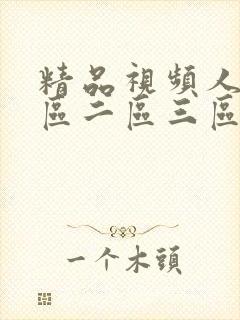 精品視頻人
區二區三區
一个木頭